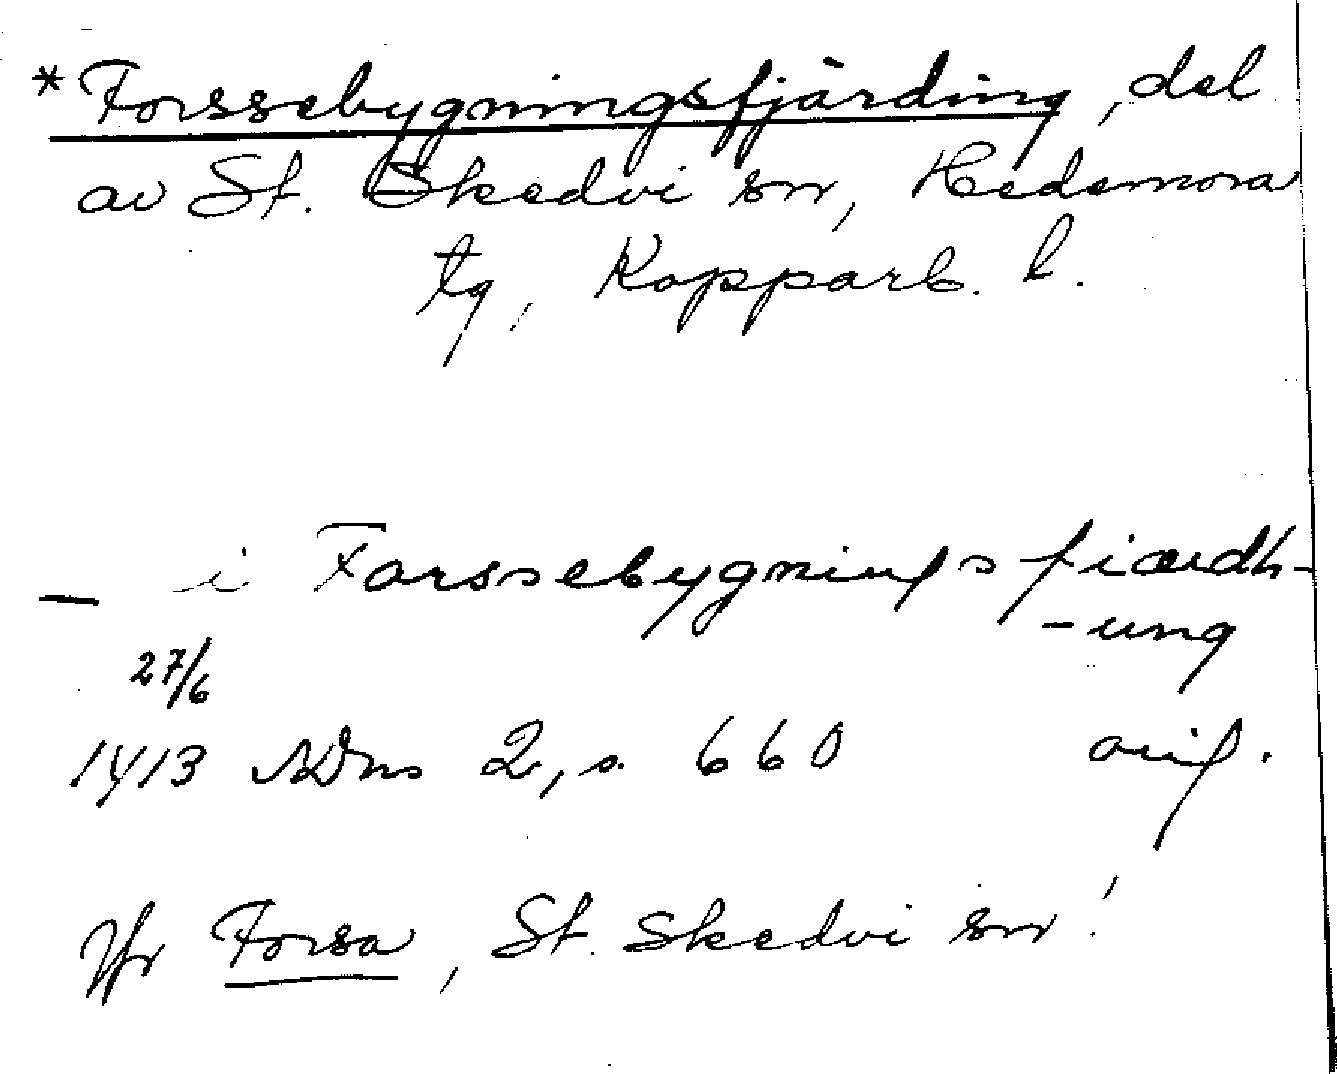 *Forssebygningsfjärding, del
av St. Skedvi sn, Hedemora
tg, Kopparb. l.
– i Forssebygnings fiærdh-
-ung
27/6
1413 SDns 2, s. 660 orig.
Jfr Forsa, St. Skedvi sn!